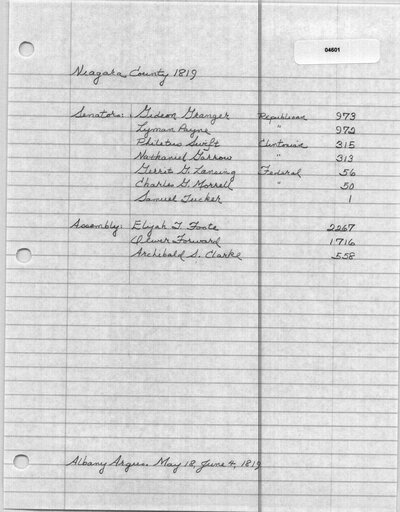 04601
Niagara County 1819
Senators: Gideon Granger Republican 973
Lyman Payne " 972
Philetus Swift Clintonian 315
Nathaniel Garrow " 313
Gerrit G. Lansing Federal 56
Charles G. Morrell " 50
Samuel Tucker 1
Assembly: Elijah T. Foote 2267
Oliver Forward 1716
Archibald S. Clarke 558
Albany Argus. May 18, June 4, 1819